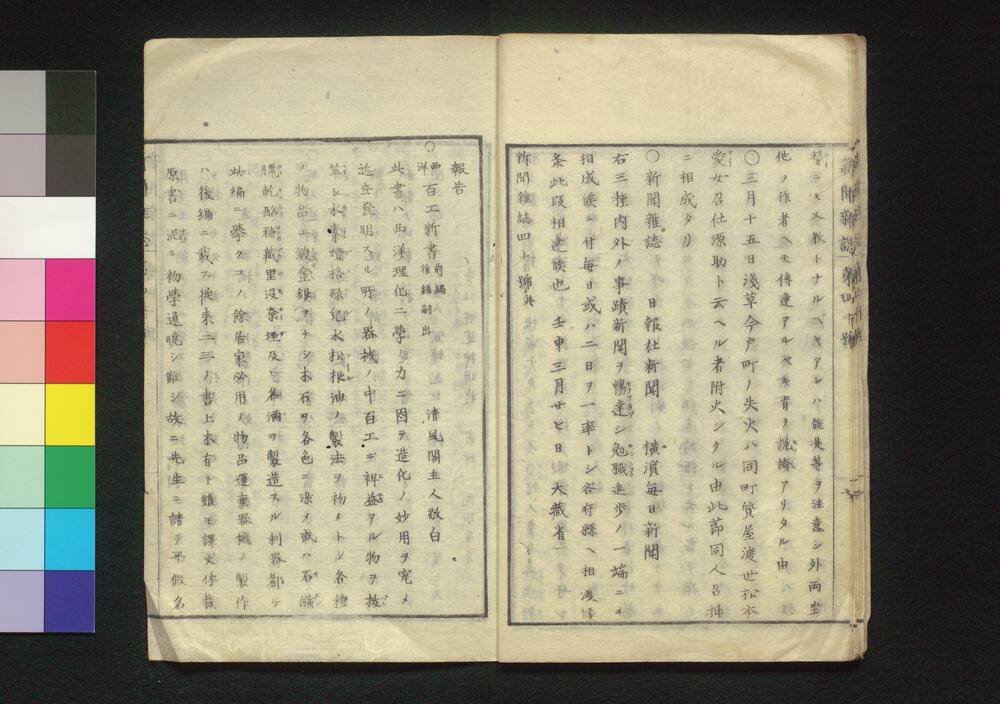 新聞雜誌 第四十號
督ニモ又教トナルベキアレハ能其等ヲ注意シ外両坐
他ノ作者ヘモ傳達アルベキ旨ヲ説諭アリタル由
〇三月十五日淺草今戸町ノ失火ハ同町貸屋渡世松本
愛女召仕源助ト云ヘル者附火シタル由此節同人召捕
ニ相成タリ
〇新聞雜誌 日報社新聞 横濱毎日新聞
右三種内外ノ事蹟新聞ヲ暢達シ勉職進歩ノ一端ニモ
相成候ニ付毎日或ハ二日ヲ一率トシ各府縣ヘ相渡候
条此段相達候也 壬申三月廿七日 大藏省
新聞雜誌四十號終
報告
〇西洋百工新書 前編 後編嗣出 清風閣主人敬白
此書ハ西洋理化ニ學ノ力ニ因テ造化ノ妙用ヲ究メ
近世發明スル所ノ器械ノ中百工ニ裨益アル物ヲ抜
萃シ水素燈格碌兒水松根油ノ製法ヲ初メトシ各種
ノ物品エ鍍金銀ヲナシ木石ヲ各色ニ染メ或ハ石鹸
臘乾酪糖藏里没奈埋及ヒ名酒ヲ製造スル利器都テ
此編ニ擧クコノ餘居家必用ノ物品運重器械ノ製作
ハ後編ニ載ス從来二三ノ書上木有ト雖モ譯文体裁
原書ニ泥ミ初學通曉シ難シ故ニ先生ニ請テ平假名